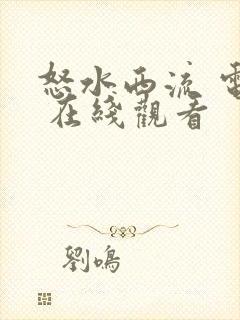 怒水西流 電
在綫觀看
劉鳴